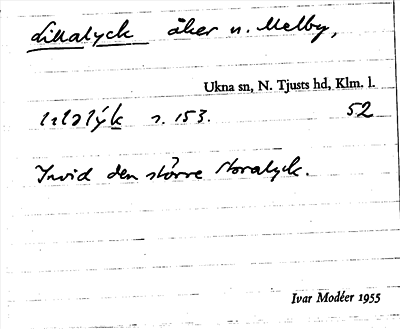 Lillalyck åker n. Melby,
Ukna sn, N. Tjusts hd, Klm. l.
s. 153. 52
Invid den större Storalyck.
Ivar Modéer 1955